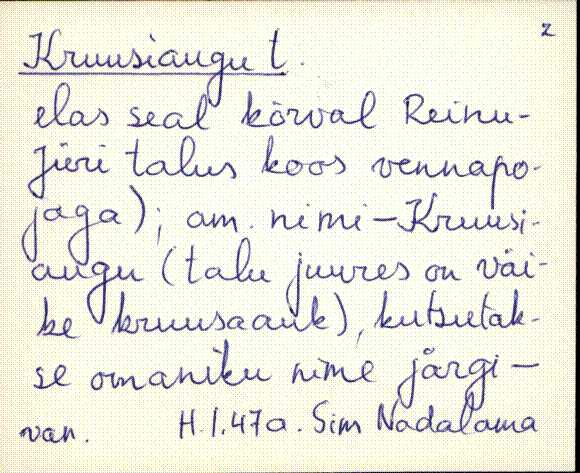 2
Kruusiaugu t.
elas seal kõrval Reinu-
Jüri talus koos vennapo-
jaga); am. nimi – Kruusi-
augu (talu juures on väi-
ke kruusaauk), kutsutak-
se omaniku nime järgi –
van. H. I. 47 a. Sim Nadalama